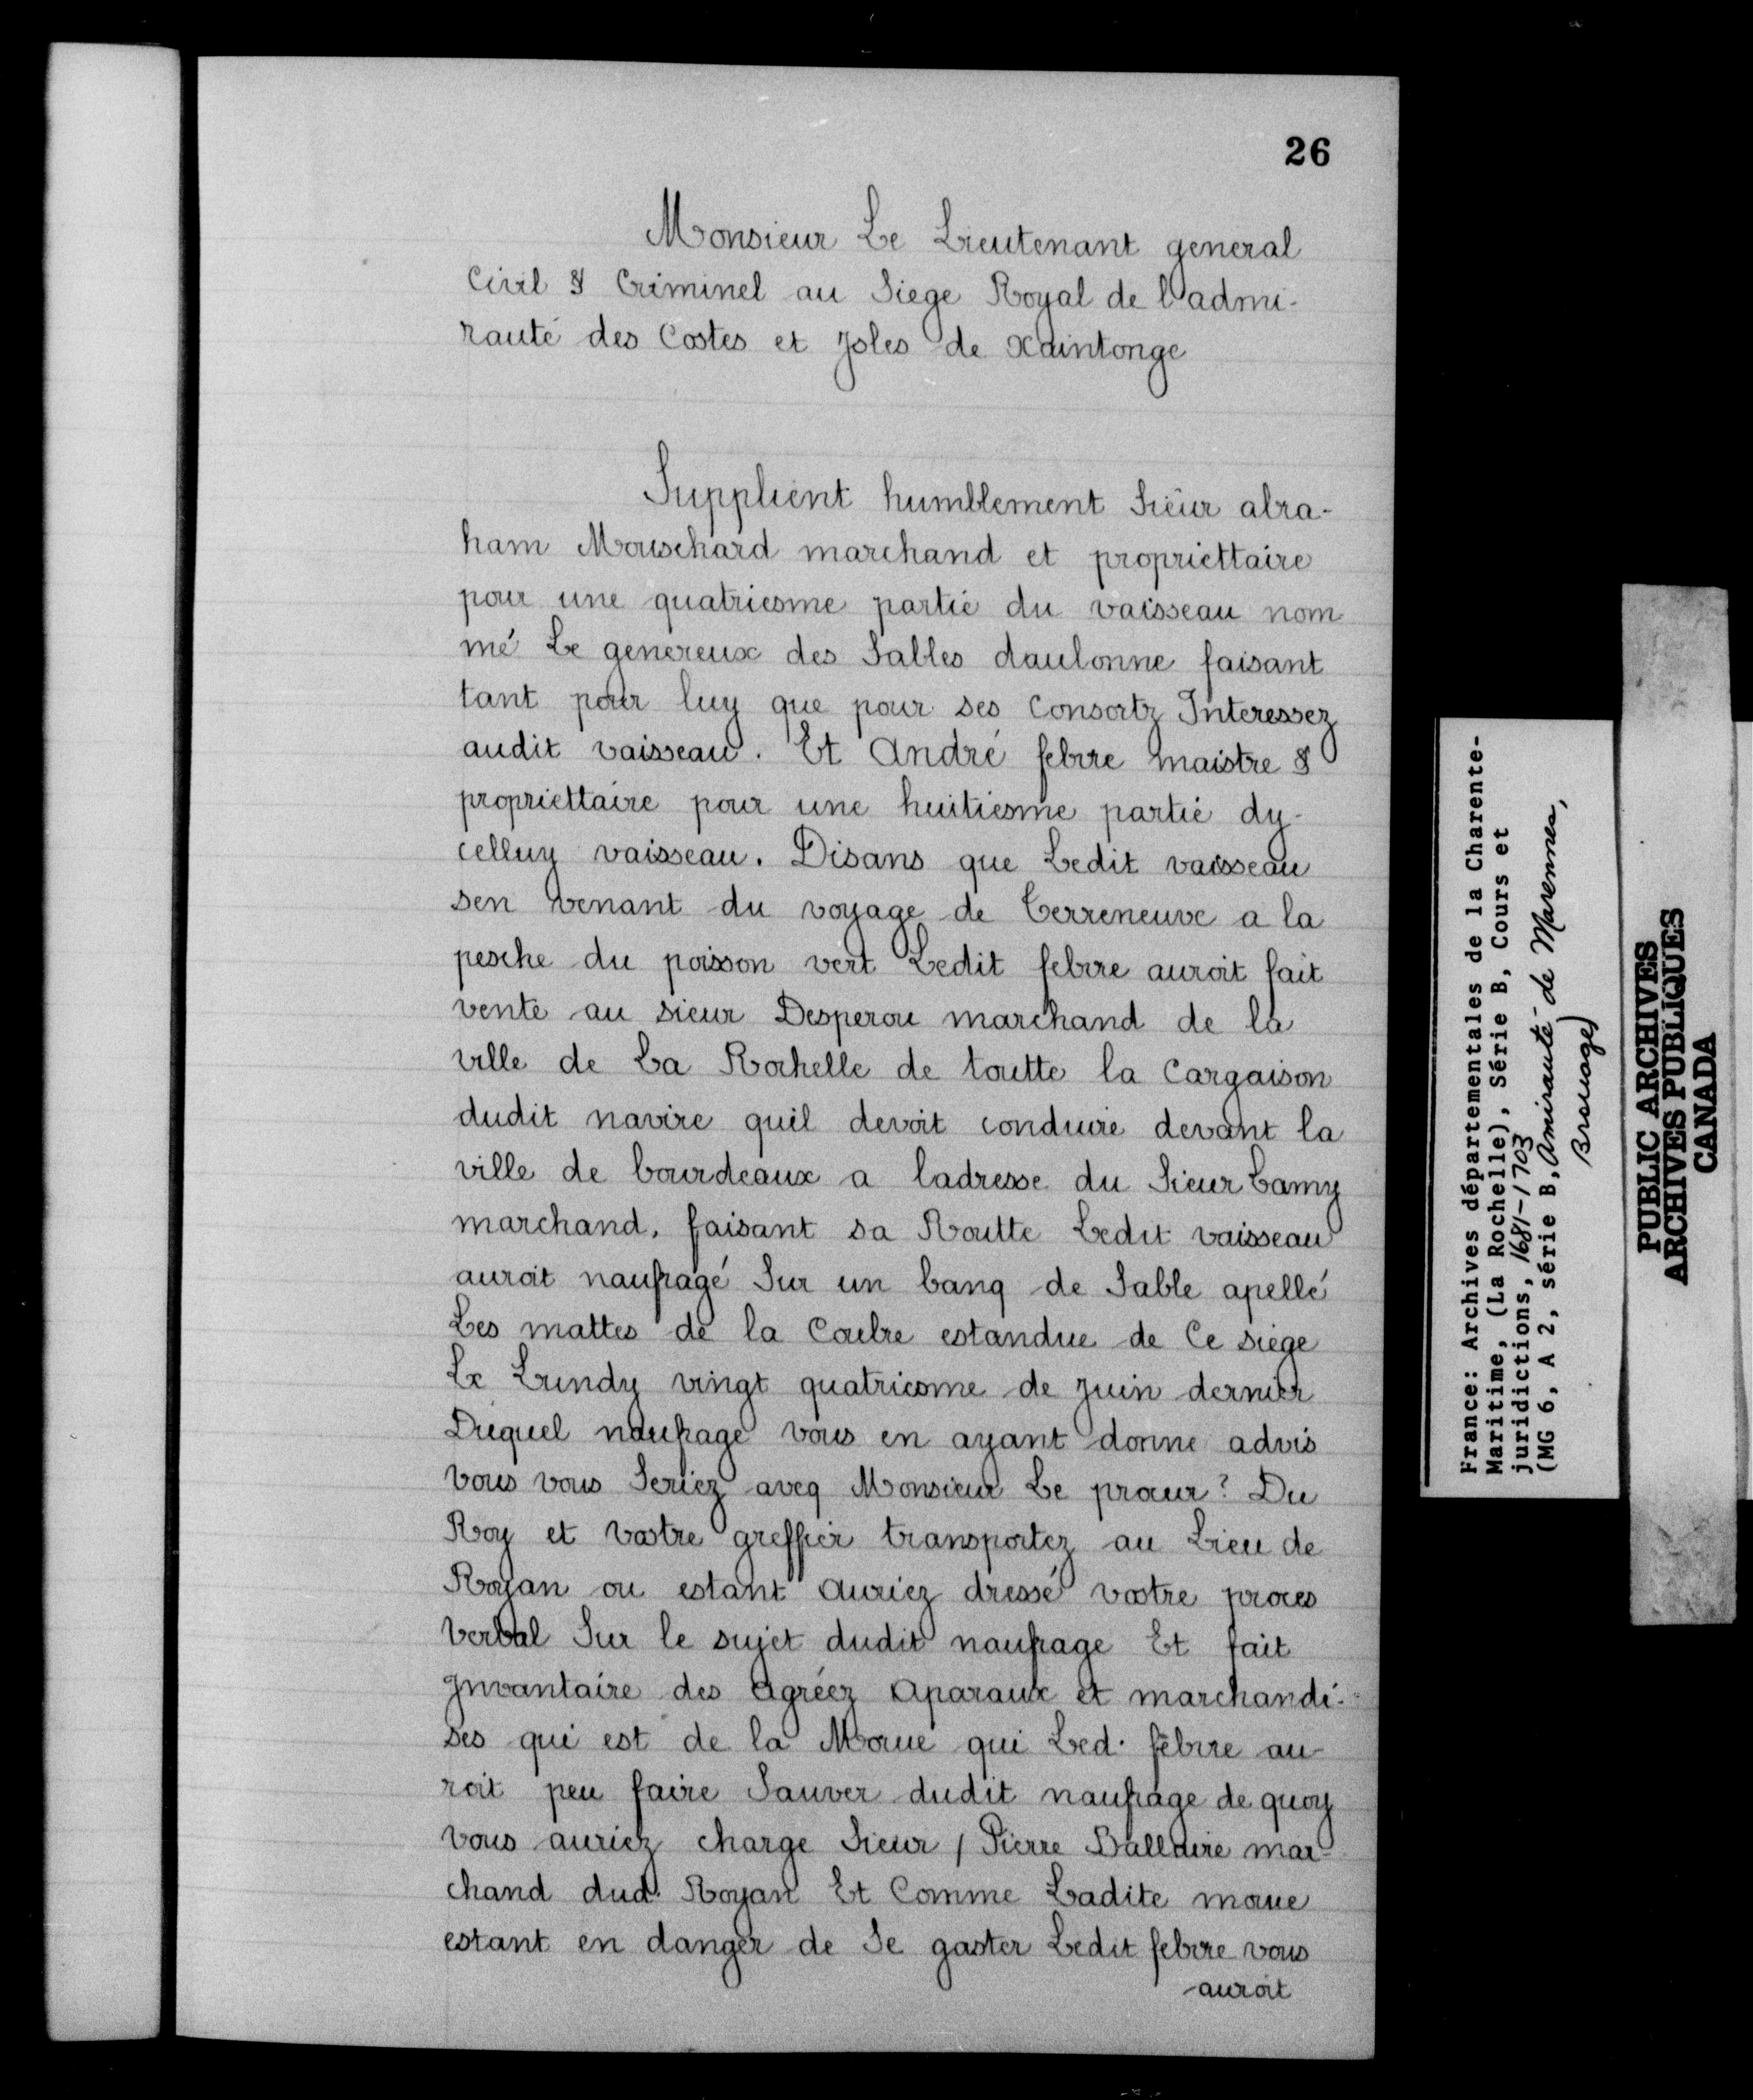 26
Monsieur Le Lieutenant general
Civil & Criminel au Siege Royal de l'admi-
rauté des Costes et Jsles de Xaintonge
Supplient humblement Sieur abra-
ham Mouschard marchand et propriettaire
pour une quatriesme partie du vaisseau nom
mé Le genereux des Sables daulonne faisant
tant pour luy que pour ses Consortz Interessez
audit vaisseau. Et André febvre maistre &
propriettaire pour une huitiesme partie dy-
celluy vaisseau. Disans que Ledit vaisseau
sen venant du voyage de Terreneuve a la
pesche du poisson vert Ledit febvre auroit fait
vente au sieur Desperou marchand de la
ville de La Rochelle de toutte la Cargaison
dudit navire quil devoit conduire devant la
ville de bourdeaux a ladresse du Sieur Lamy
marchand, faisant sa Routte Ledit vaisseau
auroit naufragé Sur un banq de Sable apellé
Les mattes de la Coubre estandue de Ce siege
Le Lundy vingt quatriesme de Juin dernier
Duquel naufrage vous en ayant donne advis
vous vous Seriez aveq Monsieur Le procur? Du
Roy et vostre greffier transportez au Lieu de
Royan ou estant auriez dressé vostre proces
verbal Sur le sujet dudit naufrage Et fait
Jnvantaire des agréez aparaux et marchandi-
ses qui est de la Morue qui Led. febvre au-
roit peu faire Sauver dudit naufrage de quoy
vous auriez charge Sieur / Pierre Ballaire mar-
chand dud. Royan Et Comme Ladite morue
estant en danger de Se gaster Ledit febvre vous
auroit
France: Archives départementales de la Charente-
Maritime, (La Rochelle), Série B, Cours et
juridictions, 1681-1703
(MG 6, A 2, série B, Amirauté de Marennes,
Brouage)
PUBLIC ARCHIVES
ARCHIVES PUBLIQUES
CANADA